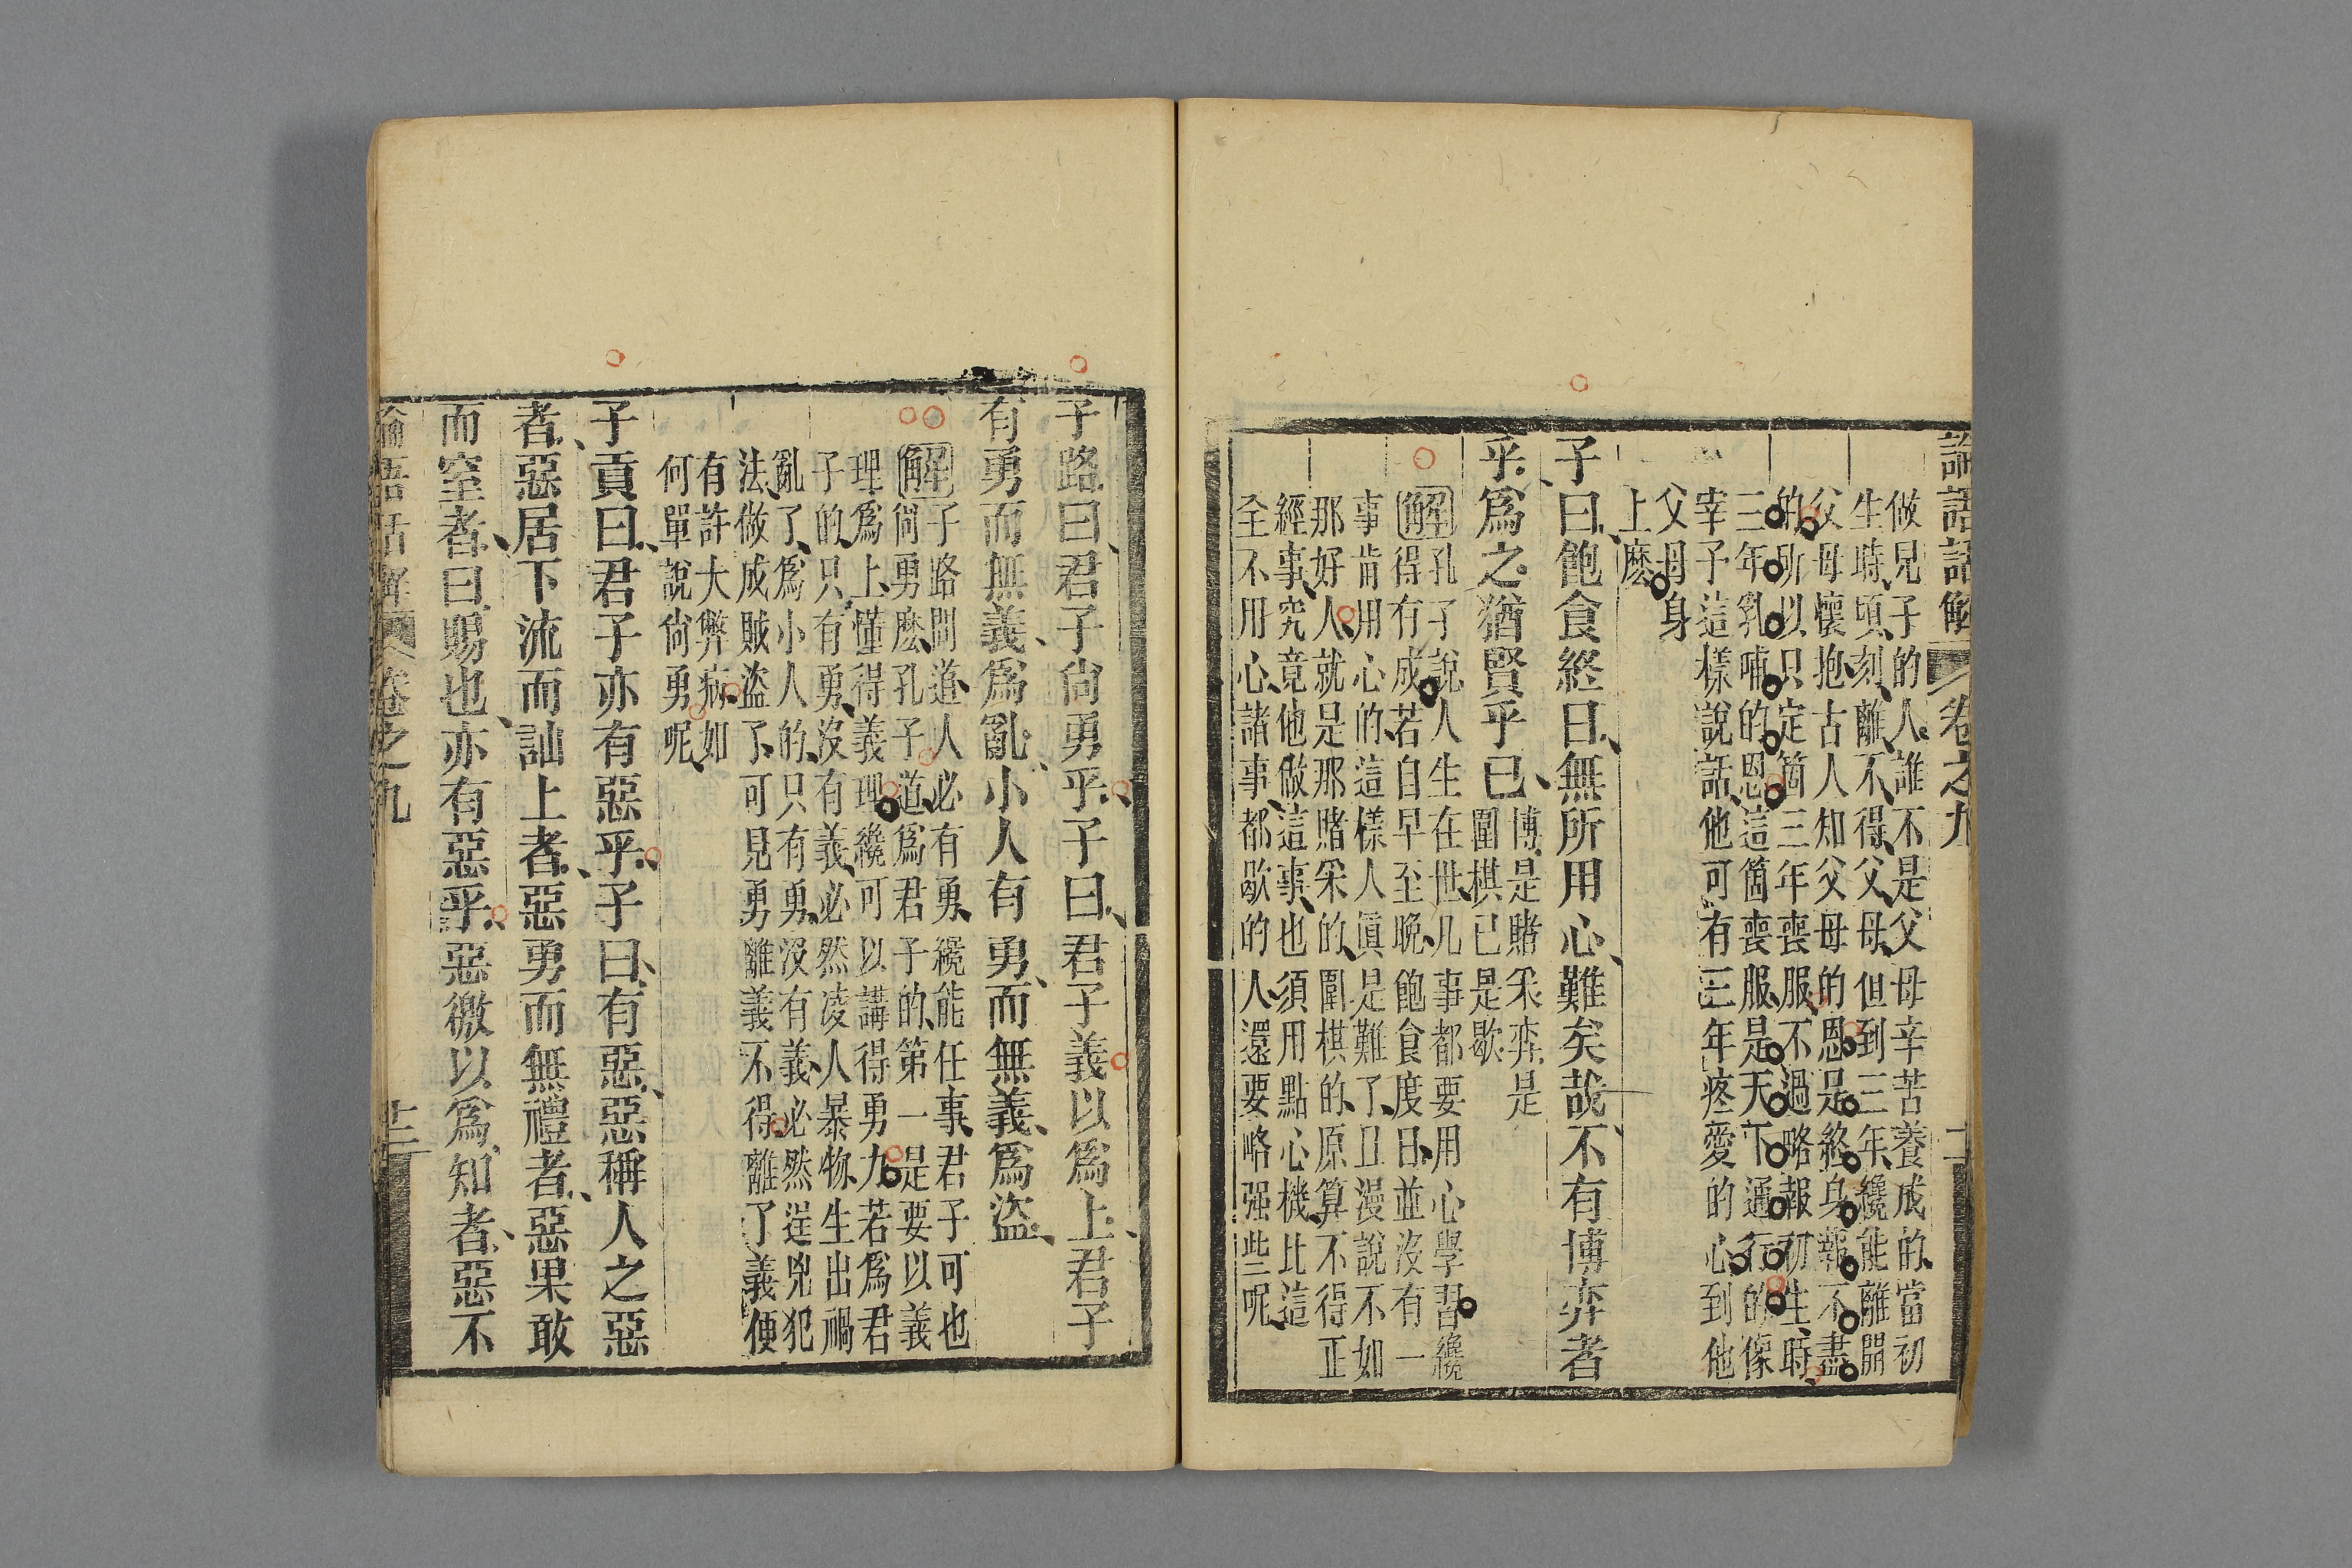 論語話解 卷之九
做兒子的人誰不是父母辛苦養成的當初
生時頃刻離不得父母但到三年纔能離開
父母懷抱古人知父母的恩是終身報不盡
的所以只定箇三年喪服不過略報初生時
三年乳哺的恩這箇喪服是天下通行的像
宰予這樣說話他可有三年疼愛的心到他
父母身
上麼
子曰飽食終日無所用心難矣哉不有博弈者
乎爲之猶賢乎已
博是賭采弈是
圍棋已是歇
解孔子說人生在世凡事都要用心學習纔
得有成若自早至晚飽食度日並沒有一
事肯用心的這樣人眞是難了且漫說不如
那好人就是那賭采的圍棋的原算不得正
經事究竟他做這事也須用點心機比這
全不用心諸事都歇的人還要略强些呢
子路曰君子尙勇乎子曰君子義以爲上君子
有勇而無義爲亂小人有勇而無義爲盜
解子路問道人必有勇纔能任事君子可也
尙勇麼孔子道爲君子的第一是要以義
理爲上懂得義理纔可以講得勇力若爲君
子的只有勇沒有義必然凌人暴物生出禍
亂了爲小人的只有勇沒有義必然逞兇犯
法做成賊盜了可見勇離義不得離了義便
有許大弊病如
何單說尙勇呢
子貢曰君子亦有惡乎子曰有惡惡稱人之惡
者惡居下流而訕上者惡勇而無禮者惡果敢
而窒者曰賜也亦有惡乎惡徼以爲知者惡不
論語話解 卷之九